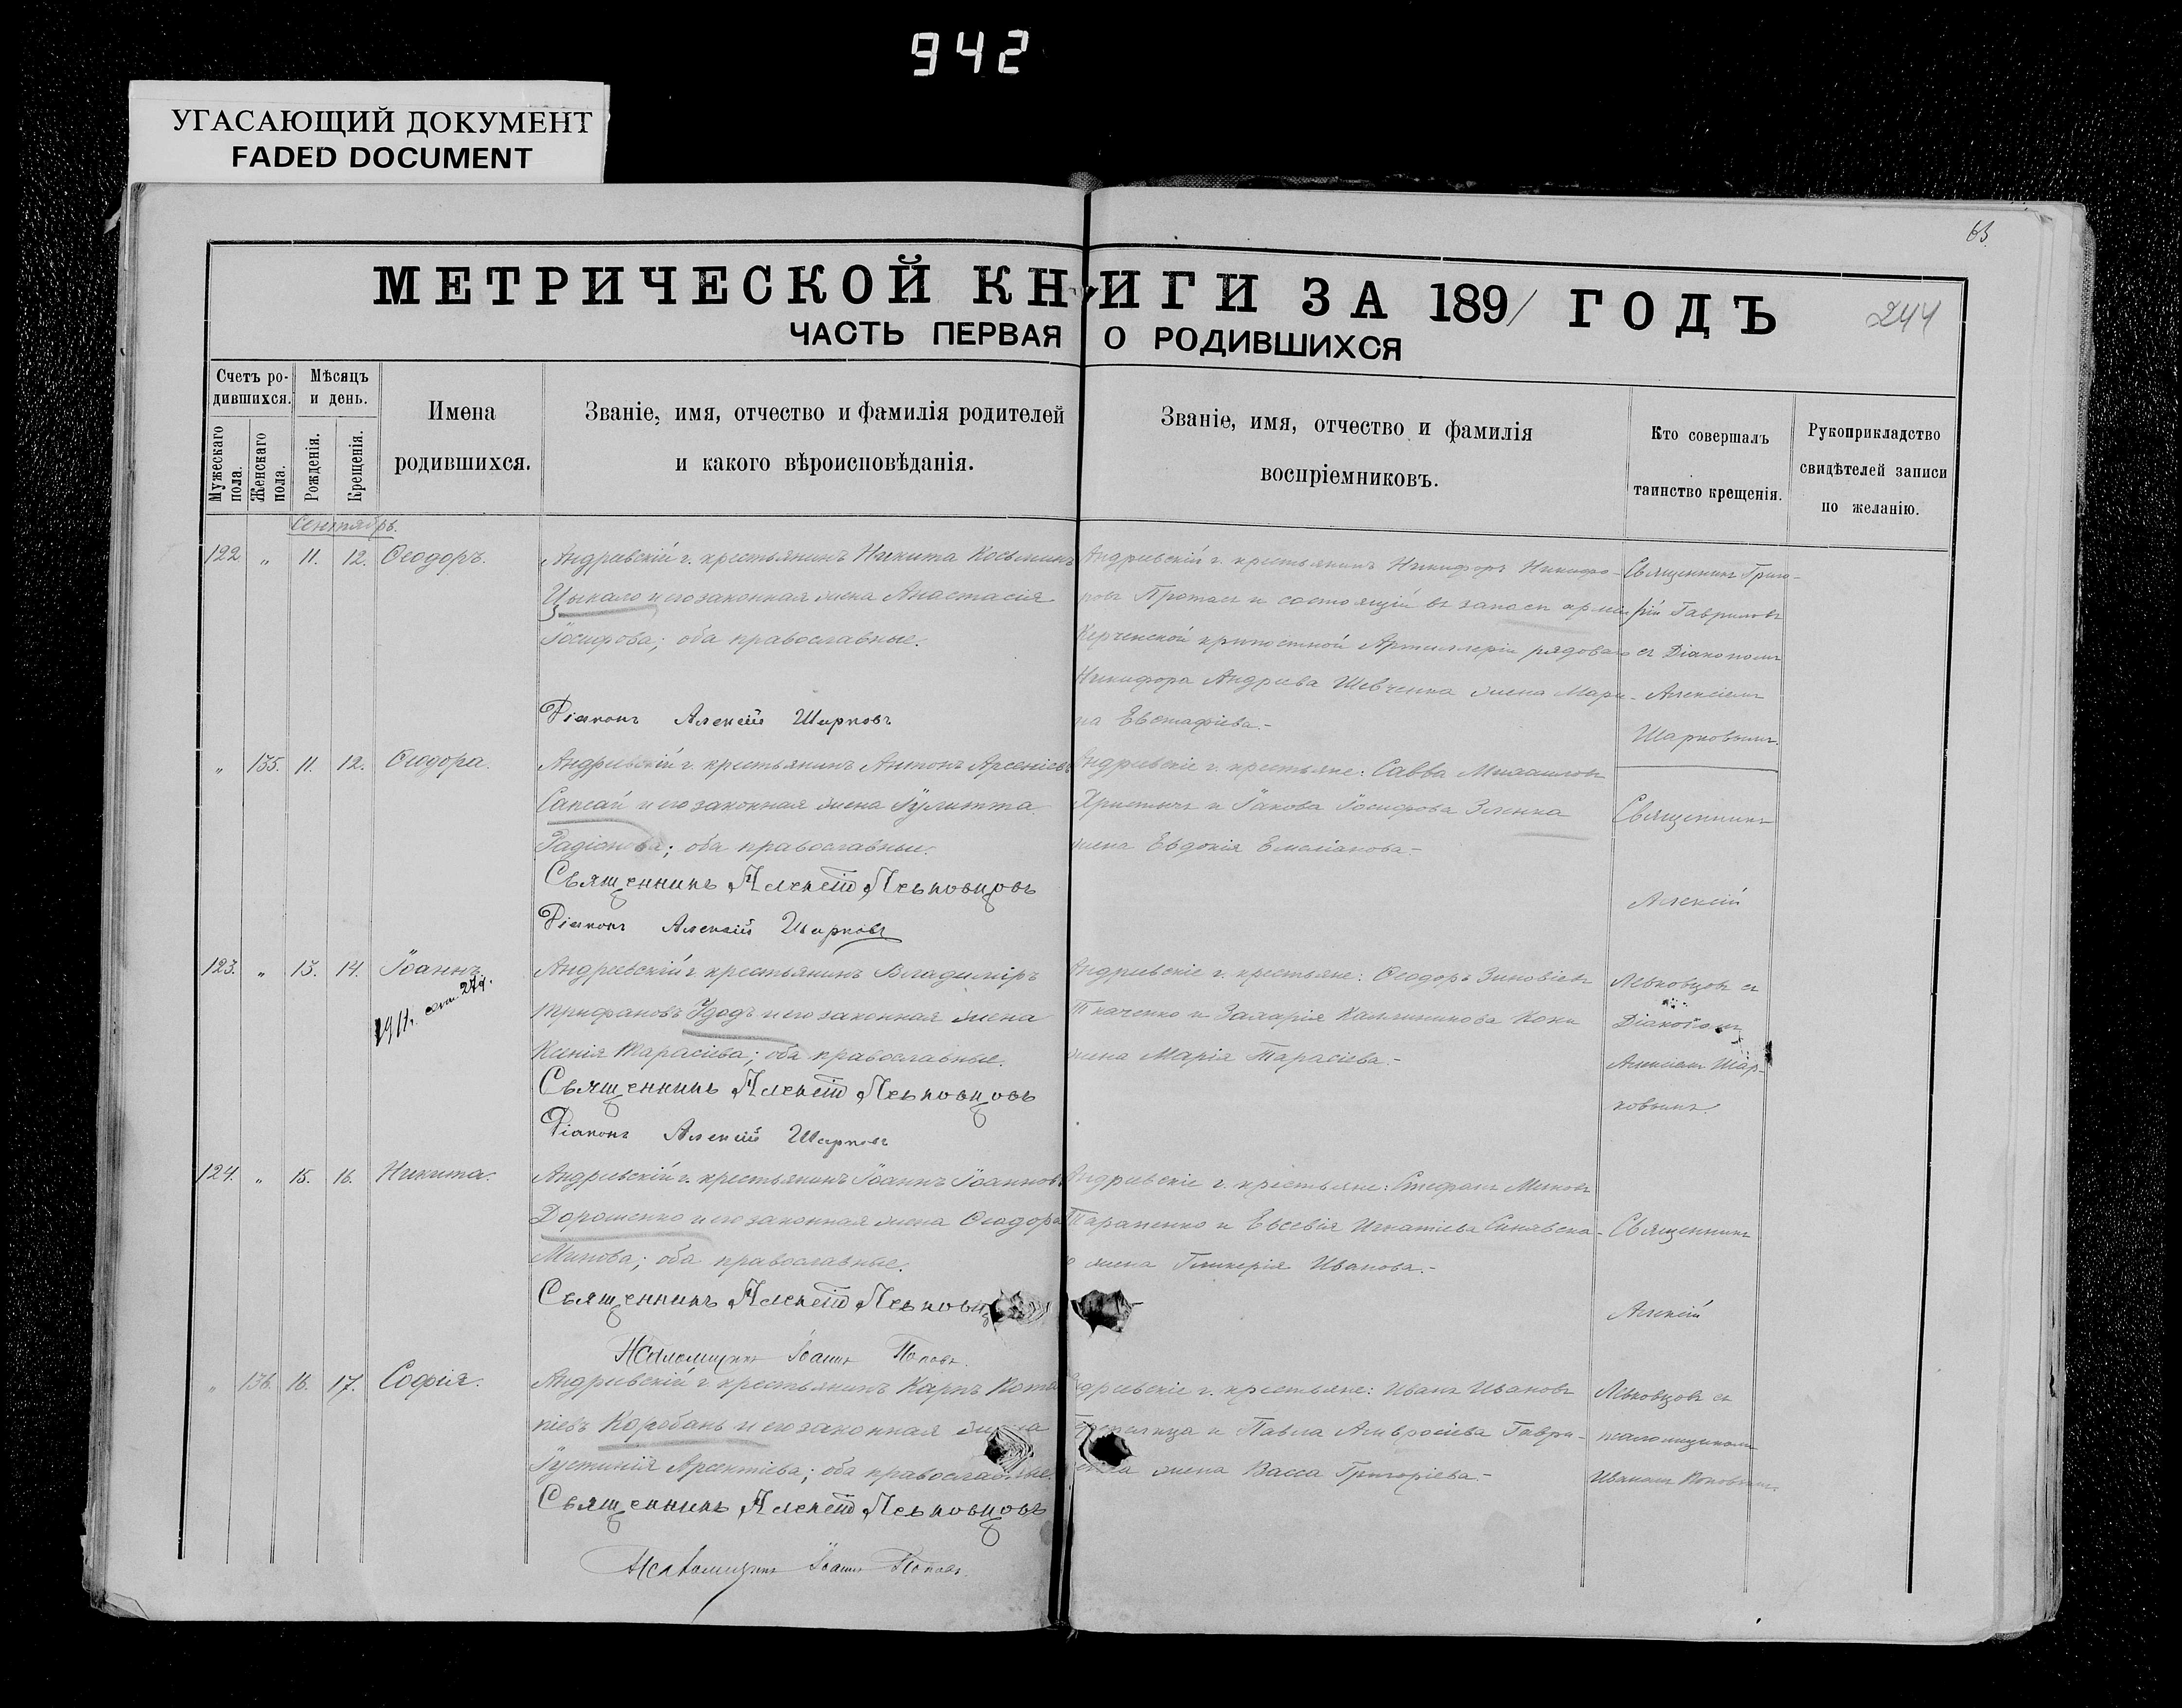 942
УГАСАЮЩИЙ ДОКУМЕНТ
FADED DOCUMENT
63.
МЕТРИЧЕСКОЙ КНИГИ ЗА 1891 ГОДЪ
244
ЧАСТЬ ПЕРВАЯ О РОДИВШИХСЯ
Счетъ ро-
дившихся.
Мужескаго пола.
Женскаго пола.
Мѣсяцъ
и день.
Рожденія.
Крещенія.
Имена
родившихся.
Званіе, имя, отчество и фамилія родителей
и какого вѣроисповѣданія.
Званіе, имя, отчество и фамилія
воспріемниковъ.
Кто совершалъ
таинство крещенія.
Рукоприкладство
свидѣтелей записи
по желанію.
Сентябрь.
122 " 11. 12. Ѳеодоръ.
Андреевскій г. крестьянинъ Никита Косьминъ
Цыкало и его законная жена Анастасія
Іосифова; оба православные.
Діаконъ Алексій Шарковъ
Андреевскій г. крестьянинъ Никифоръ Никифо-
ровъ и состоящій въ запасѣ арміи
Керченской крѣпостной Артиллеріи рядоваго
Никифора Андреева Шевченка жена Мари-
на Евстафіева.-
Священникъ Григо-
рій Гавриловъ
съ Діакономъ
Алексіемъ
Шарковымъ.
" 135. 11. 12. Ѳеодора.
Андреевскій г. крестьянинъ Антонъ Арсеніевъ
Сапсай и его законная жена Іулитта
Радіонова; оба православные.
Священникъ Алексій Левковцовъ
Діаконъ Алексій Шарковъ
Андреевскіе г. крестьяне: Савва Михаиловъ
и Іакова Іосифова Зленка
жена Евдокія Емеліанова.-
Священникъ
Алексій
123. " 13. 14. Іоаннъ.
1911г. 27д.
Андреевскій г. крестьянинъ Владиміръ
Трифановъ Удодъ и его законная жена
Ксенія Тарасіева; оба православные.
Священникъ Алексій Левковцовъ
Діаконъ Алексій Шарковъ
Андреевскіе г. крестьяне: Ѳеодоръ Зиновіевъ
Ткаченко и Захарія Каллиникова
жена Марія Тарасіева.-
Левковцовъ съ
Діакономъ
Алексіемъ Шар-
ковымъ.
124. " 15. 16. Никита.
Андреевскій г. крестьянинъ Іоаннъ Іоанновъ
Дорошенко и его законная жена Ѳеодора
Минова; оба православные.
Священникъ Алексій Левковц
Псаломщикъ Іоаннъ Поповъ.
Андреевскіе г. крестьяне: Стефанъ Миновъ
Тараненко и Евсевія Игнатіева Синявска-
го жена Гликерія Иванова.-
Священникъ
Алексій
" 136. 16. 17. Софія.
Андреевскій г. крестьянинъ Карпъ
Коробань и его законная жена
Іустинія Арсентіева; оба православные.
Священникъ Алексій Левковцовъ
Псаломщикъ Іоаннъ Поповъ.
Андреевскіе г. крестьяне: Иванъ Ивановъ
и Павла Амвросіева Гаври-
жена Васса Григоріева.-
Левковцовъ съ
псаломщикомъ
Иваномъ Поповымъ.